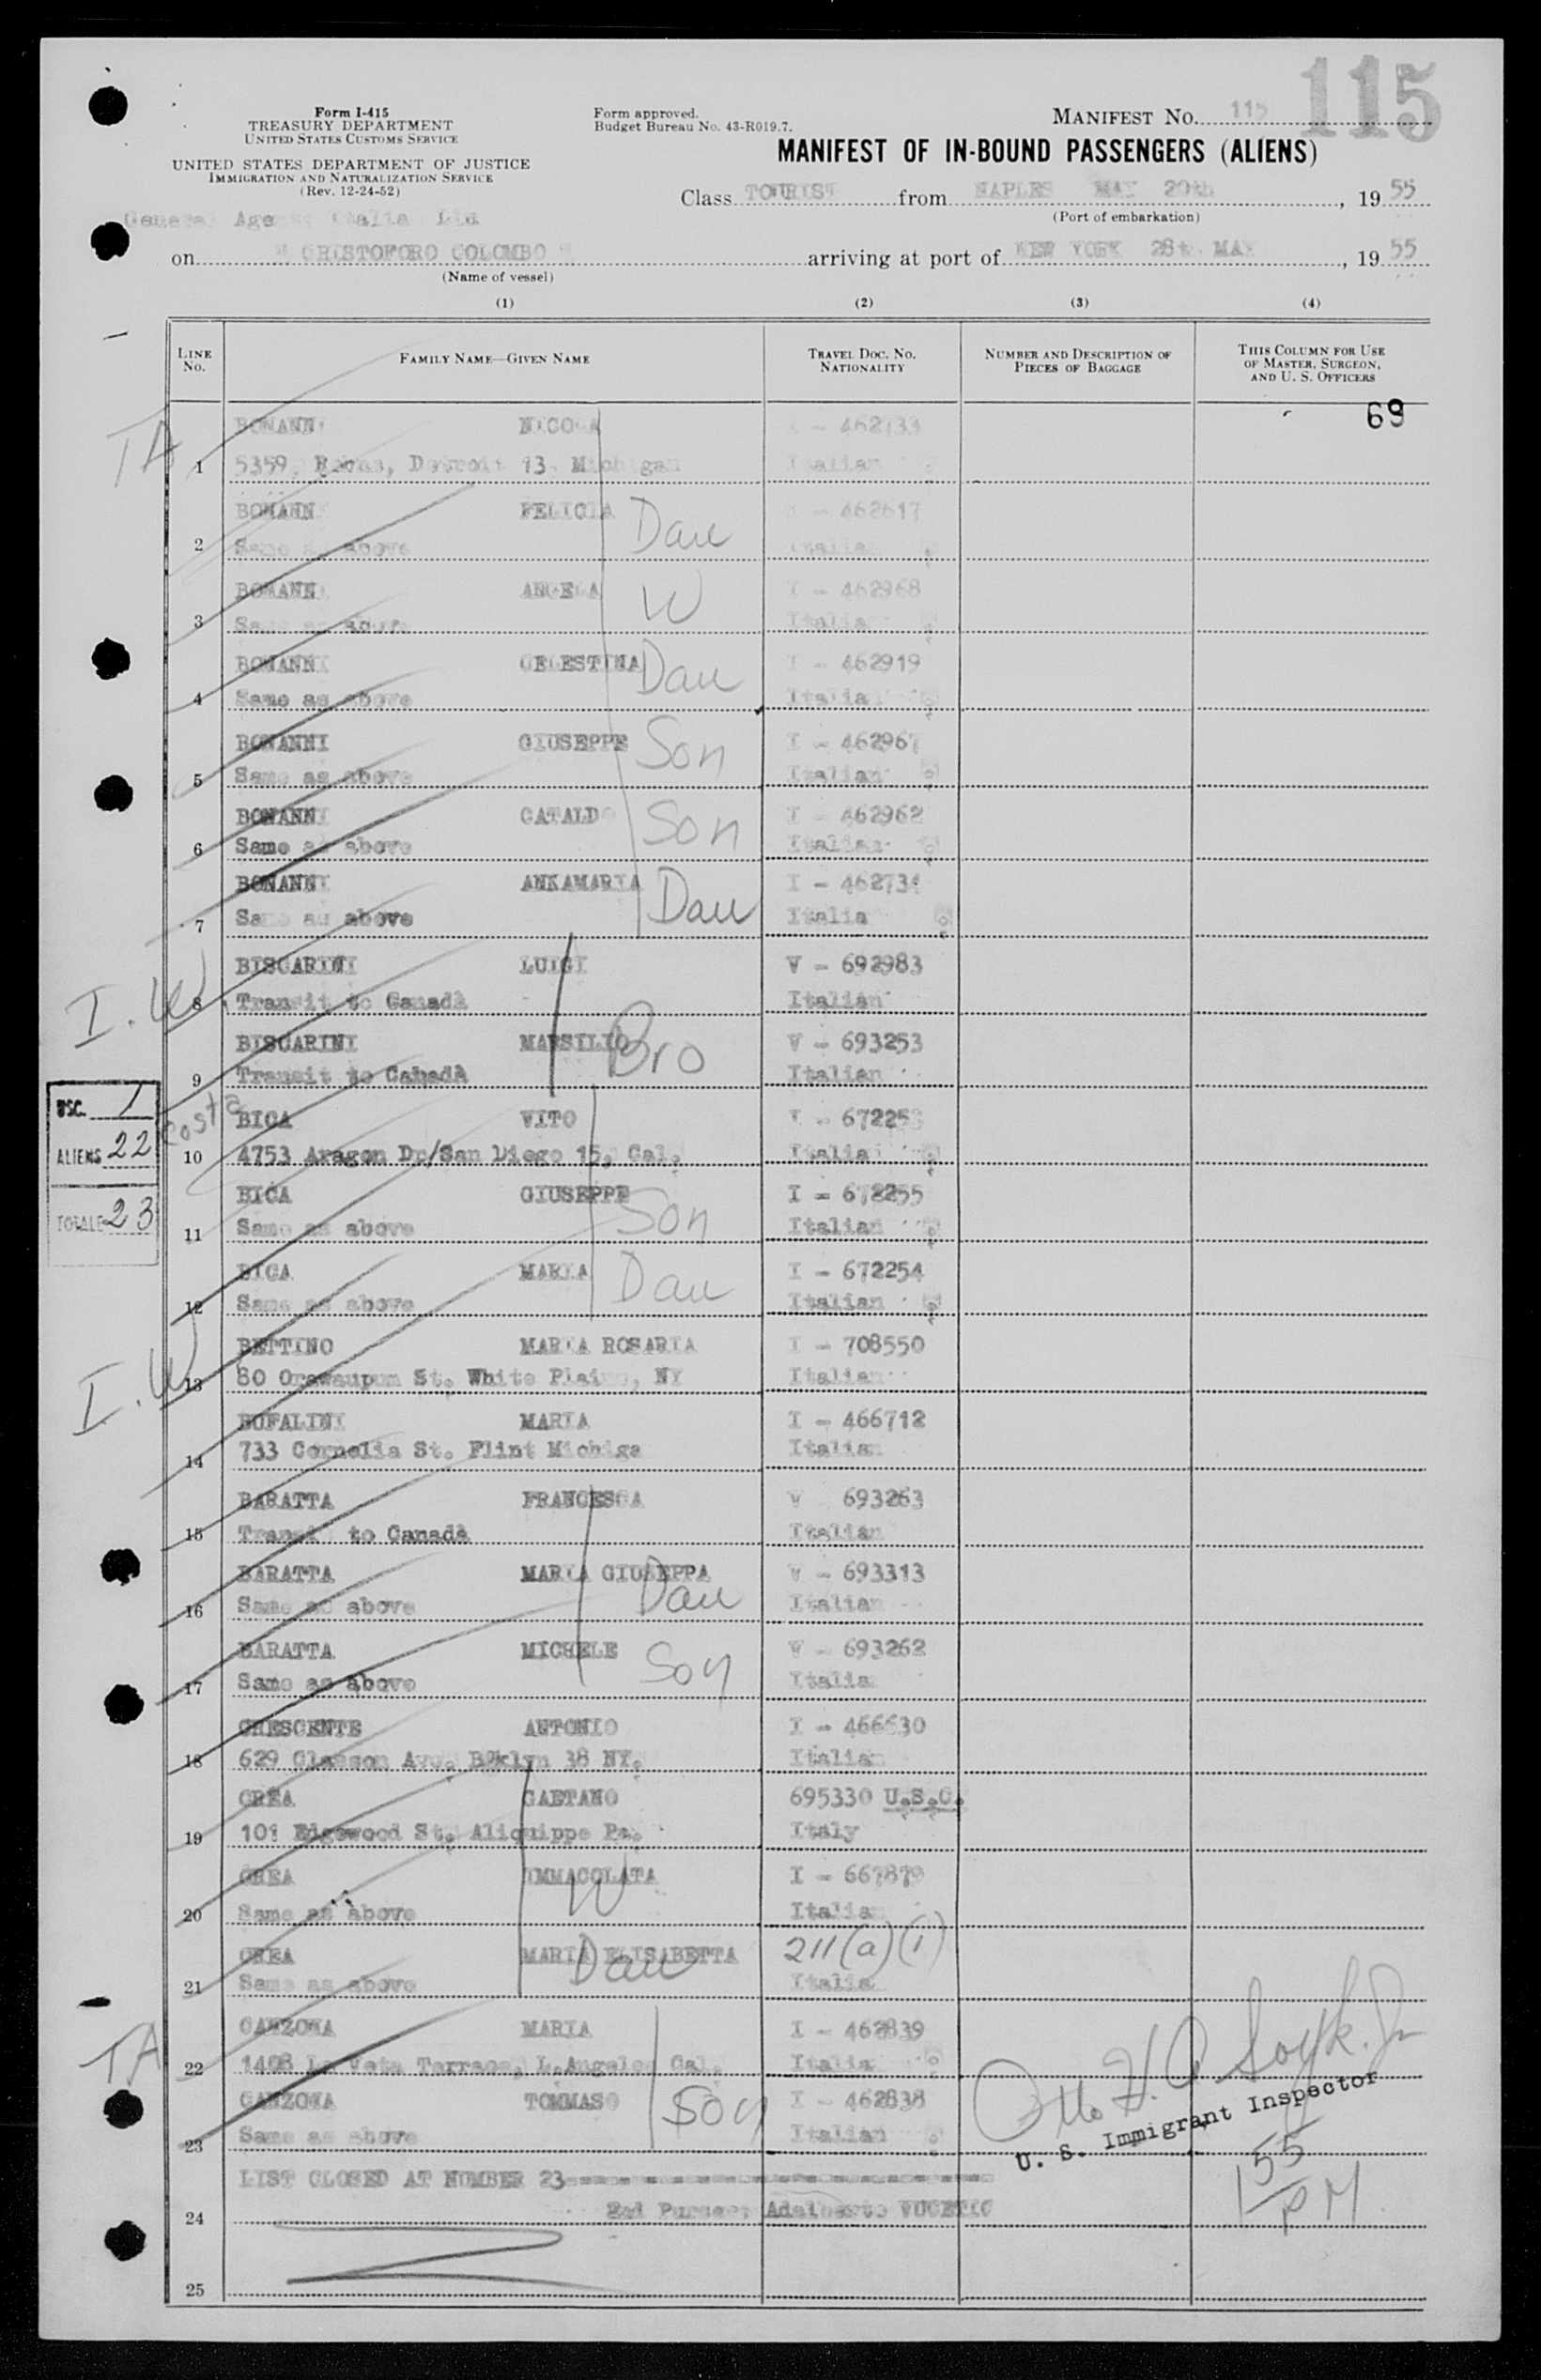 115
Form I-415
TREASURY DEPARTMENT
UNITED STATES CUSTOMS SERVICE
UNITED STATES DEPARTMENT OF JUSTICE
IMMIGRATION AND NATURALIZATION SERVICE
(Rev. 12-24-52)
Form approved.
Budget Bureau No. 43-R019.7.
MANIFEST NO. 115
MANIFEST OF IN-BOUND PASSENGERS (ALIENS)
Class TOURIST from NAPLES MAY 20th, 19 55
(Port of embarkation)
General Italia Ltd
on " CRISTOFORO COLOMBO " arriving at port of NEW YORK 28th MAY, 19 55
(Name of vessel)
(1) (2) (3) (4)
LINE NO.
FAMILY NAME—GIVEN NAME
TRAVEL DOC. NO. NATIONALITY
NUMBER AND DESCRIPTION OF PIECES OF BAGGAGE
THIS COLUMN FOR USE OF MASTER, SURGEON, AND U. S. OFFICERS
69
TA
BONANNI NICOLA I - 462733
1 5359, Detroit 13 Michigan Italian
BONANNI FELICIA Dau I - 462617
2 Same as above Italian
BONANNI ANGELA W I - 462968
3 Same as above Italian
BONANNI CELESTINA Dau I - 462919
4 Same as above Italian
BONANNI GIUSEPPE Son I - 462967
5 Same as above Italian
BONANNI CATALDO Son I - 462962
6 Same as above Italian
BONANNI ANNAMARIA Dau I - 462731
7 Same as above Italian
I.W
BISCARINI LUIGI V - 692983
8 Transit to Canadà Italian
BISCARINI MARSILIO Bro V - 693253
9 Transit to Canadà Italian
USC. 1
ALIENS 22
TOTALE 23
Costa
BICA VITO I - 672253
10 4753 Aragon Dr/San Diego 15, Cal. Italian
BICA GIUSEPPE Son I - 672255
11 Same as above Italian
BICA MARIA Dau I - 672254
12 Same as above Italian
I.W
BETTINO MARIA ROSARIA I - 708550
13 80 Orawaupum St. White Plains, NY Italian
BUFALINI MARIA I - 466712
14 733 Cornelia St. Flint Michiga Italian
BARATTA FRANCESCA V 693263
15 Transit to Canadà Italian
BARATTA MARIA GIUSEPPA Dau V - 693313
16 Same as above Italian
BARATTA MICHELE Son V - 693262
17 Same as above Italian
CRESCENTE ANTONIO I - 466630
18 629 Classon Ave. Bøklyn 38 NY. Italian
CREA GAETANO 695330 U.S.C.
19 101 Edgewood St. Aliquippe Pa. Italy
CREA IMMACOLATA W I - 667879
20 Same as above Italian
CREA MARIA ELISABETTA Dau 211(a)(1)
21 Same as above Italian
TA
CANZONA MARIA I - 462839
22 1408 La Veta Terrace, L.Angeles Cal. Italian
CANZONA TOMMASO Son I - 462838
23 Same as above Italian
U. S. Immigrant Inspector
155 PM
LIST CLOSED AT NUMBER 23
24 2nd Purser: Adalberto VUCETIC
25